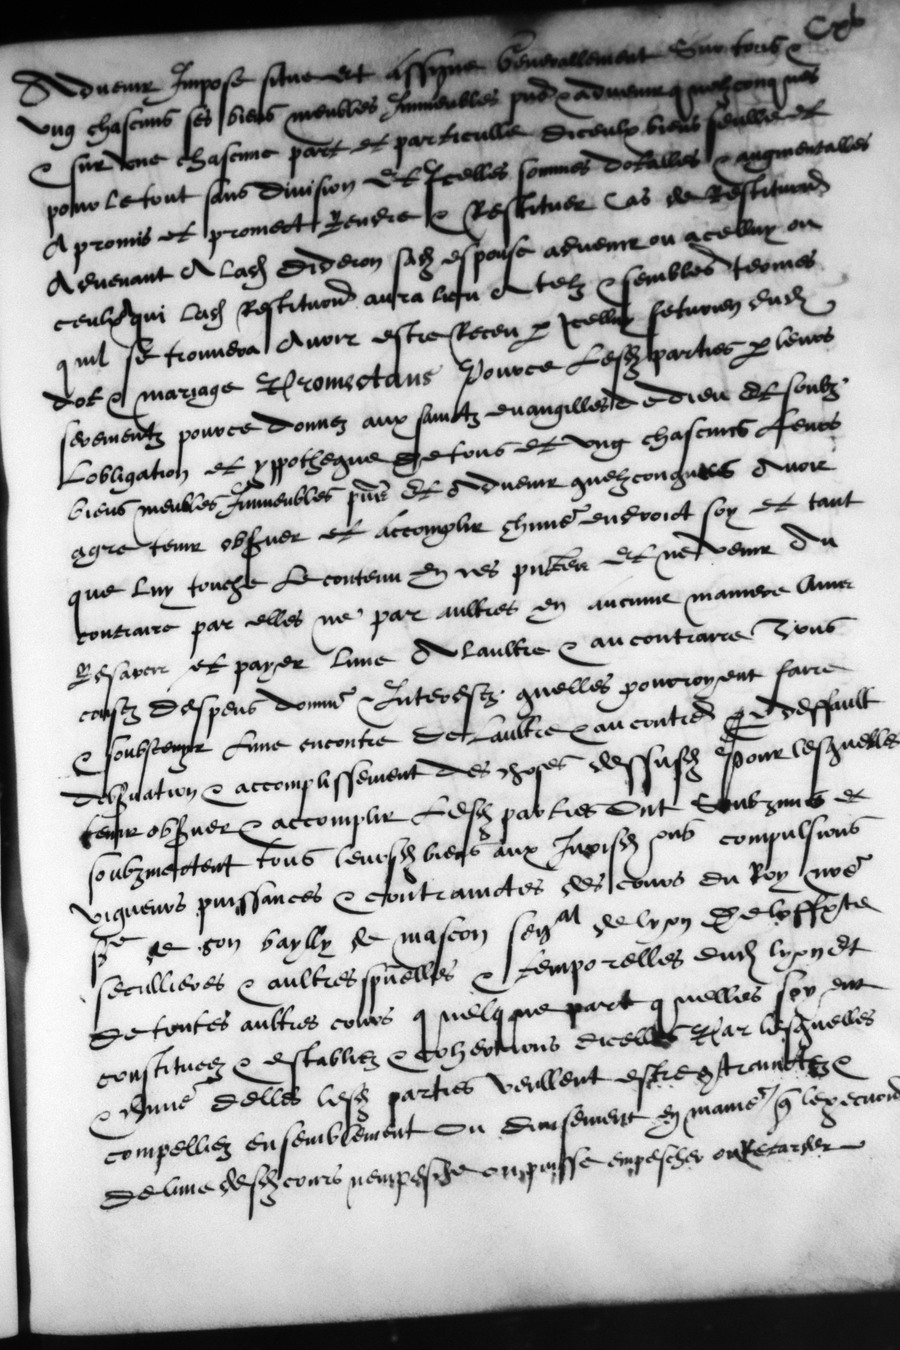 Cxlv
Advenir Impose situe et assigne generallement sur tous &
ung chascuns ses biens meubles Immeubles pns & advenir quelzconques
& sur une chascune part et particulle diceulx biens seulle et
pour le tout sans division et Icelles sommes dotalles & augmentalles
A promis et promect Rendre & Restituer Cas de Restitution
Advenant A lad dideron sad espouse advenir ou a celluy ou
ceulx qui lad Restitution aura lieu A telz & semblables termes
quil se trouvera Avoir este Receu p Icelluy futurien dud
dot & mariage Promectans Pource lesd parties p leurs
serementz pource donnez aux sainctz evangilles de dieu Et soubz
Lobligation et yppotheque de tous et ung chascuns Leurs
biens meubles Immeubles pns Et Advenir quelzconques Avoir
agre tenir observer et accomplir chune endroict soy et tant
que luy touche Le contenu En ces pntes Et ne venir Au
contraire par elles ne par aultres en aucune maniere Ains
Resarcir et payer lune A laultre & au contraire Tous
coustz despens domme & Interestz quelles pourroyent faire
& soubstenir lune encontre de Laultre & au contre Par deffault
dobservation & accomplissement des choses dessusd Pour lesquelles
tenir observer & accomplir Lesd parties Ont Soubzmis et
soubzmectent tous leursd biens aux Jurisd ons compulsions
vigueurs puissances & contrainctes des cours du Roy nre
sre de son bailly de mascon senal de lyon De loffte
seculieres & aultres spuelles & temporelles dud lyon Et
de toutes aultres cours quelque part quelles soyent
constituez & establiez & cohertions dicelles Par lesquelles
& chune delles lesd parties veullent estre contrainctz &
compelliez ensemblement Ou divisement En manie q lexecution
De lune desd cours nempesche ou puisse empescher ou Retarder